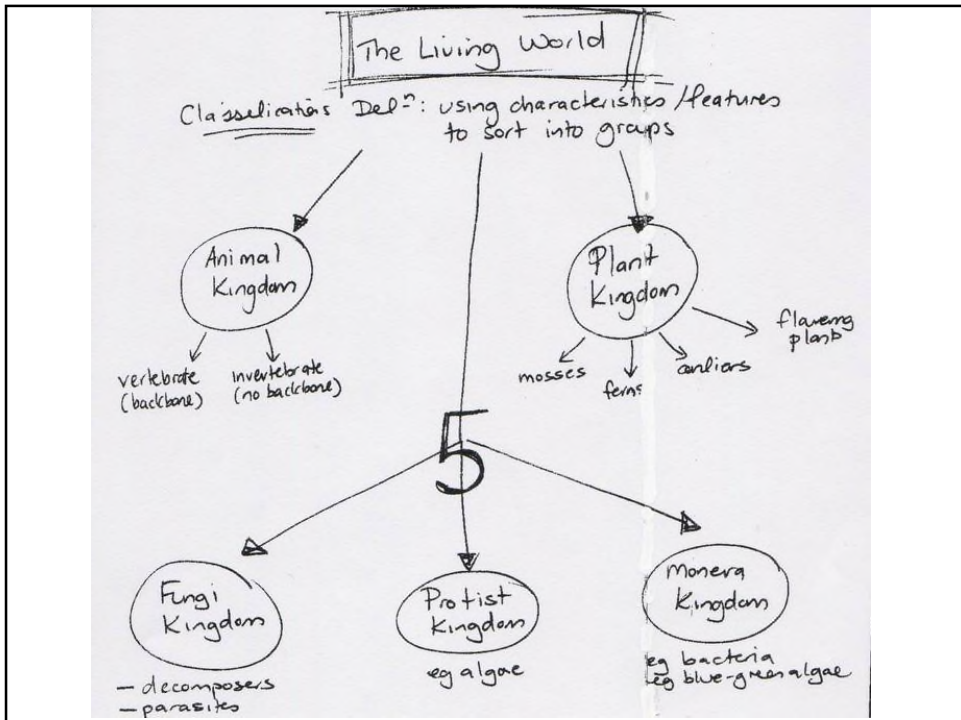 The Living World
Classification Defn: using characteristics/features
to sort into groups
Animal
Kingdom
vertebrate
(backbone)
invertebrate
(no backbone)
Plant
Kingdom
mosses
ferns
conifers
flowering
plants
5
Fungi
Kingdom
- decomposers
- parasites
Protist
Kingdom
eg algae
Monera
Kingdom
eg bacteria
eg blue-green algae